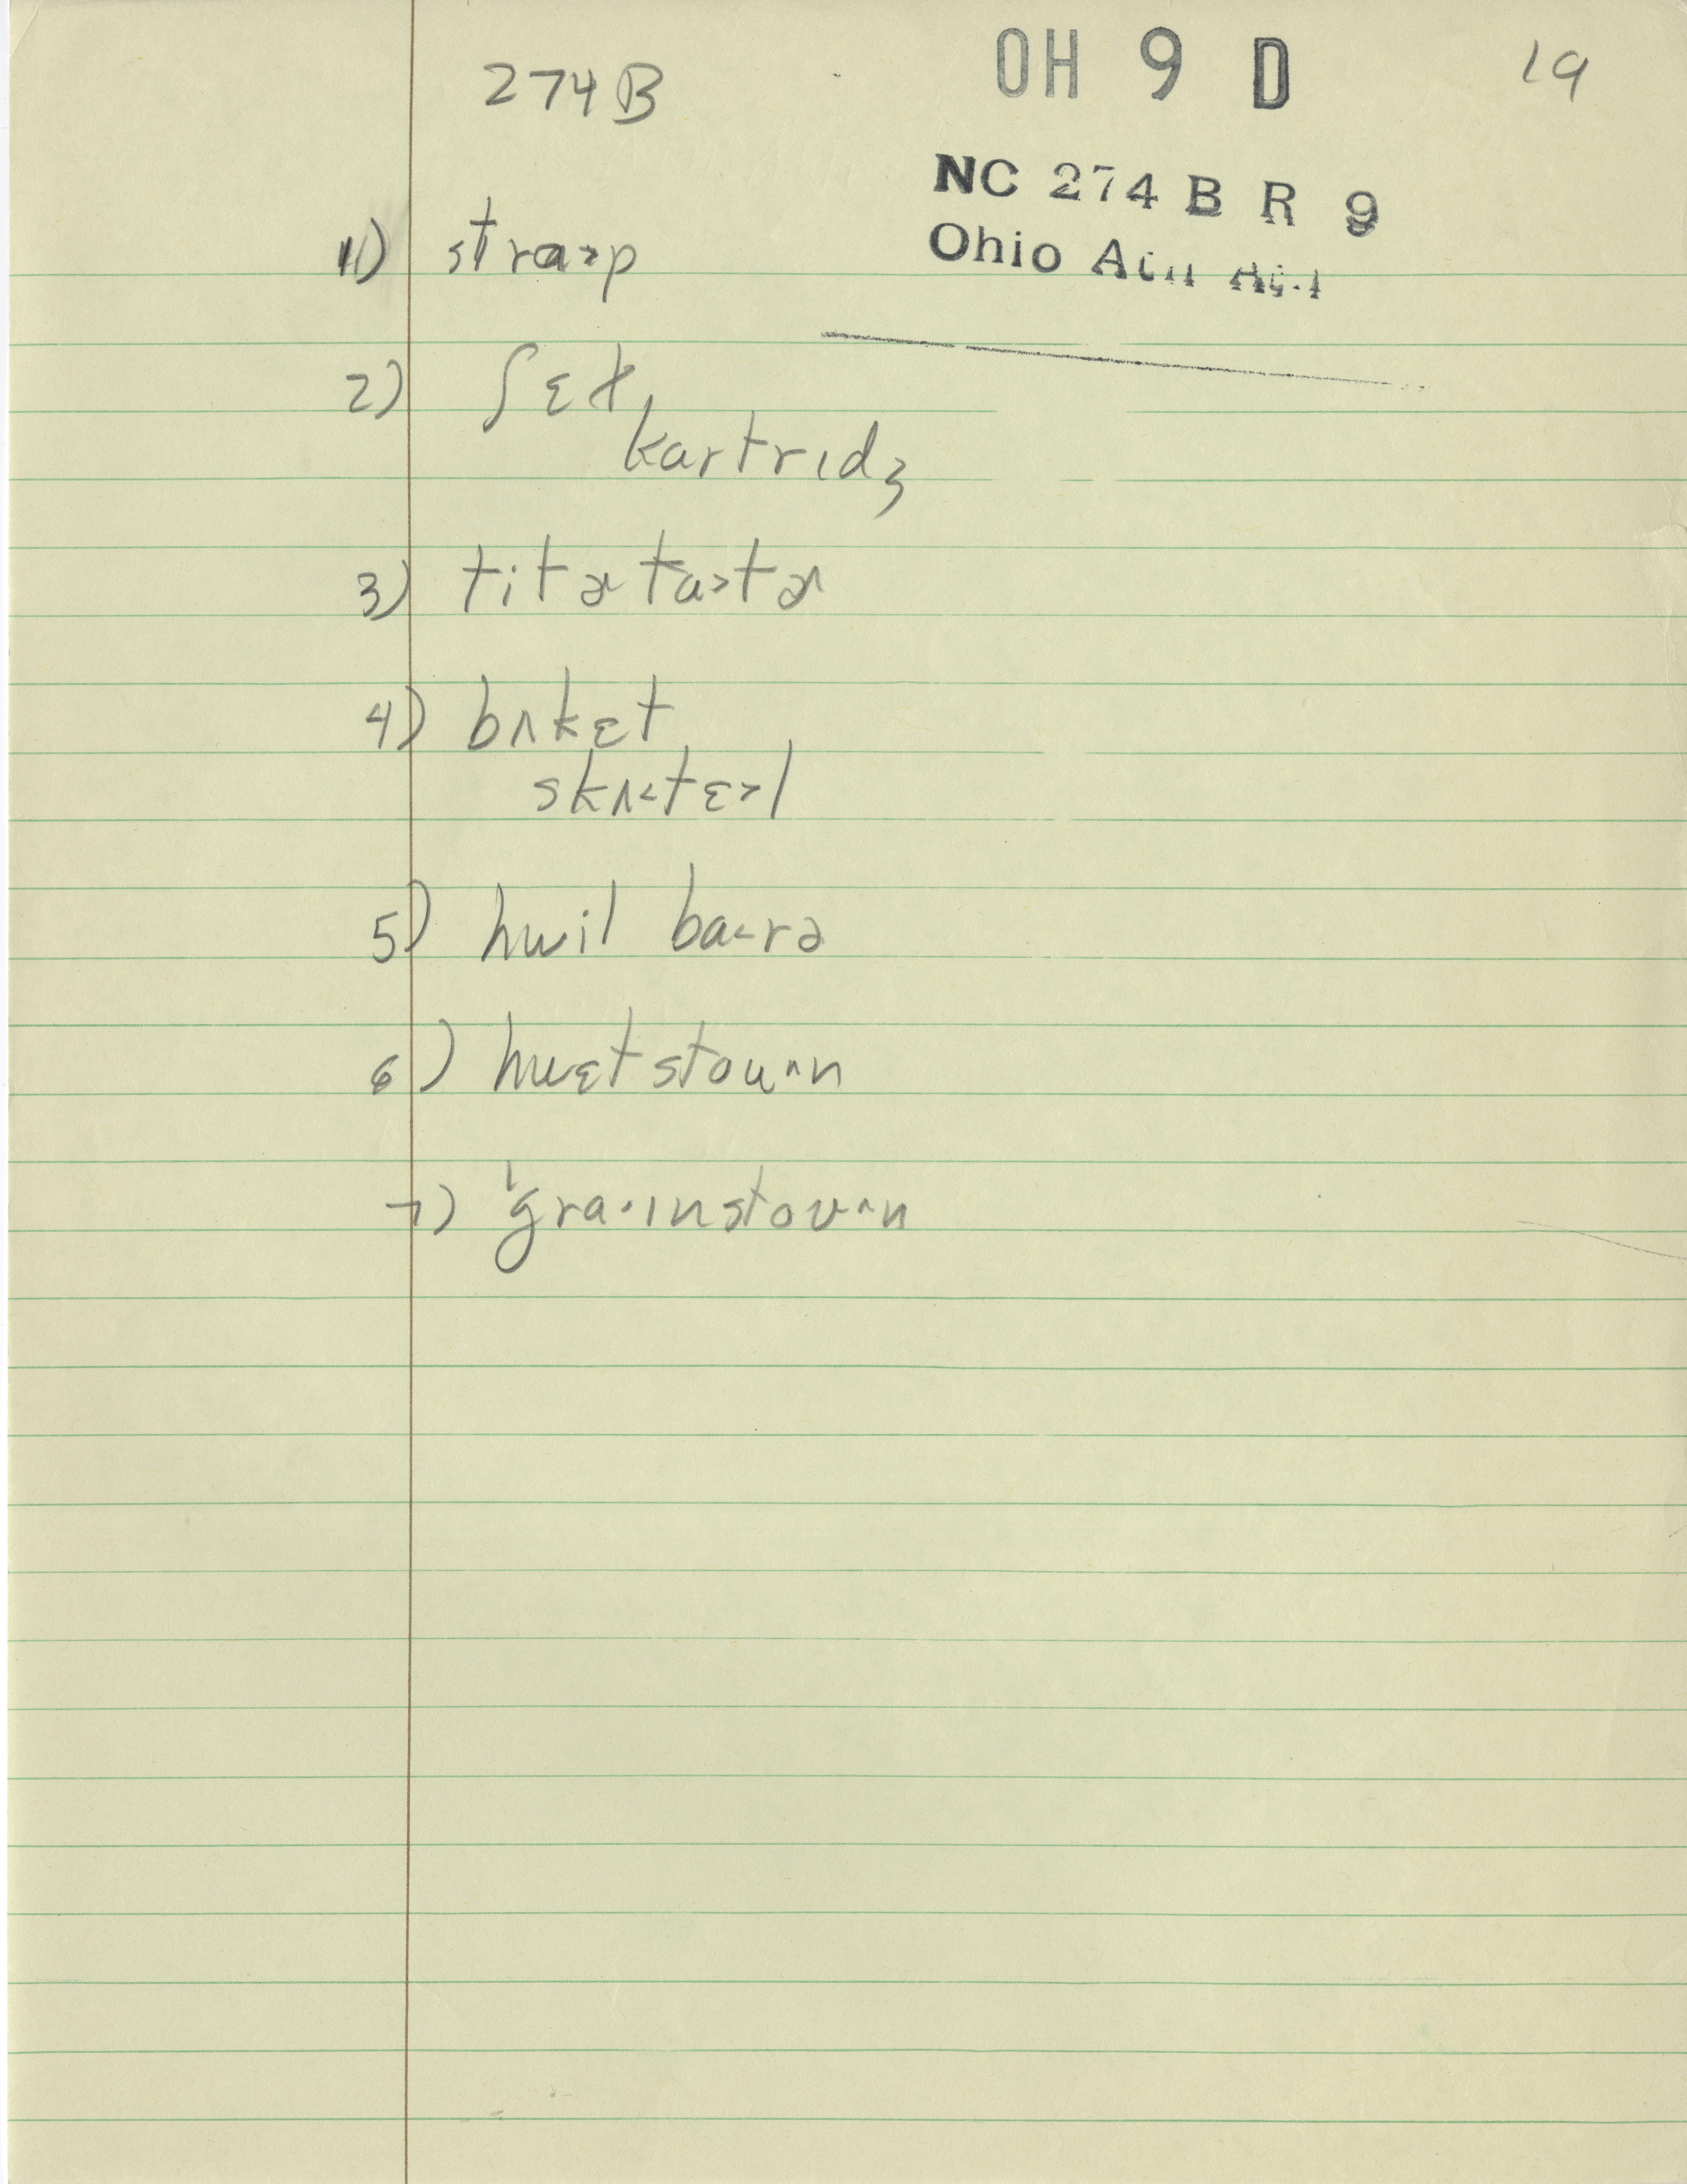 274B
OH 9 D
19
NC 274 B R 9
Ohio
1) stra˃p
2) ʃɛt,
kartrɪdʒ
3) titɚ ta˃tɚ
4) bʌkɛt
skʌ˂tɛ˃l
5) hwil ba˂rə
6) hwɛtstou˄n
7) 'gra·ɪnstoʊ˄n